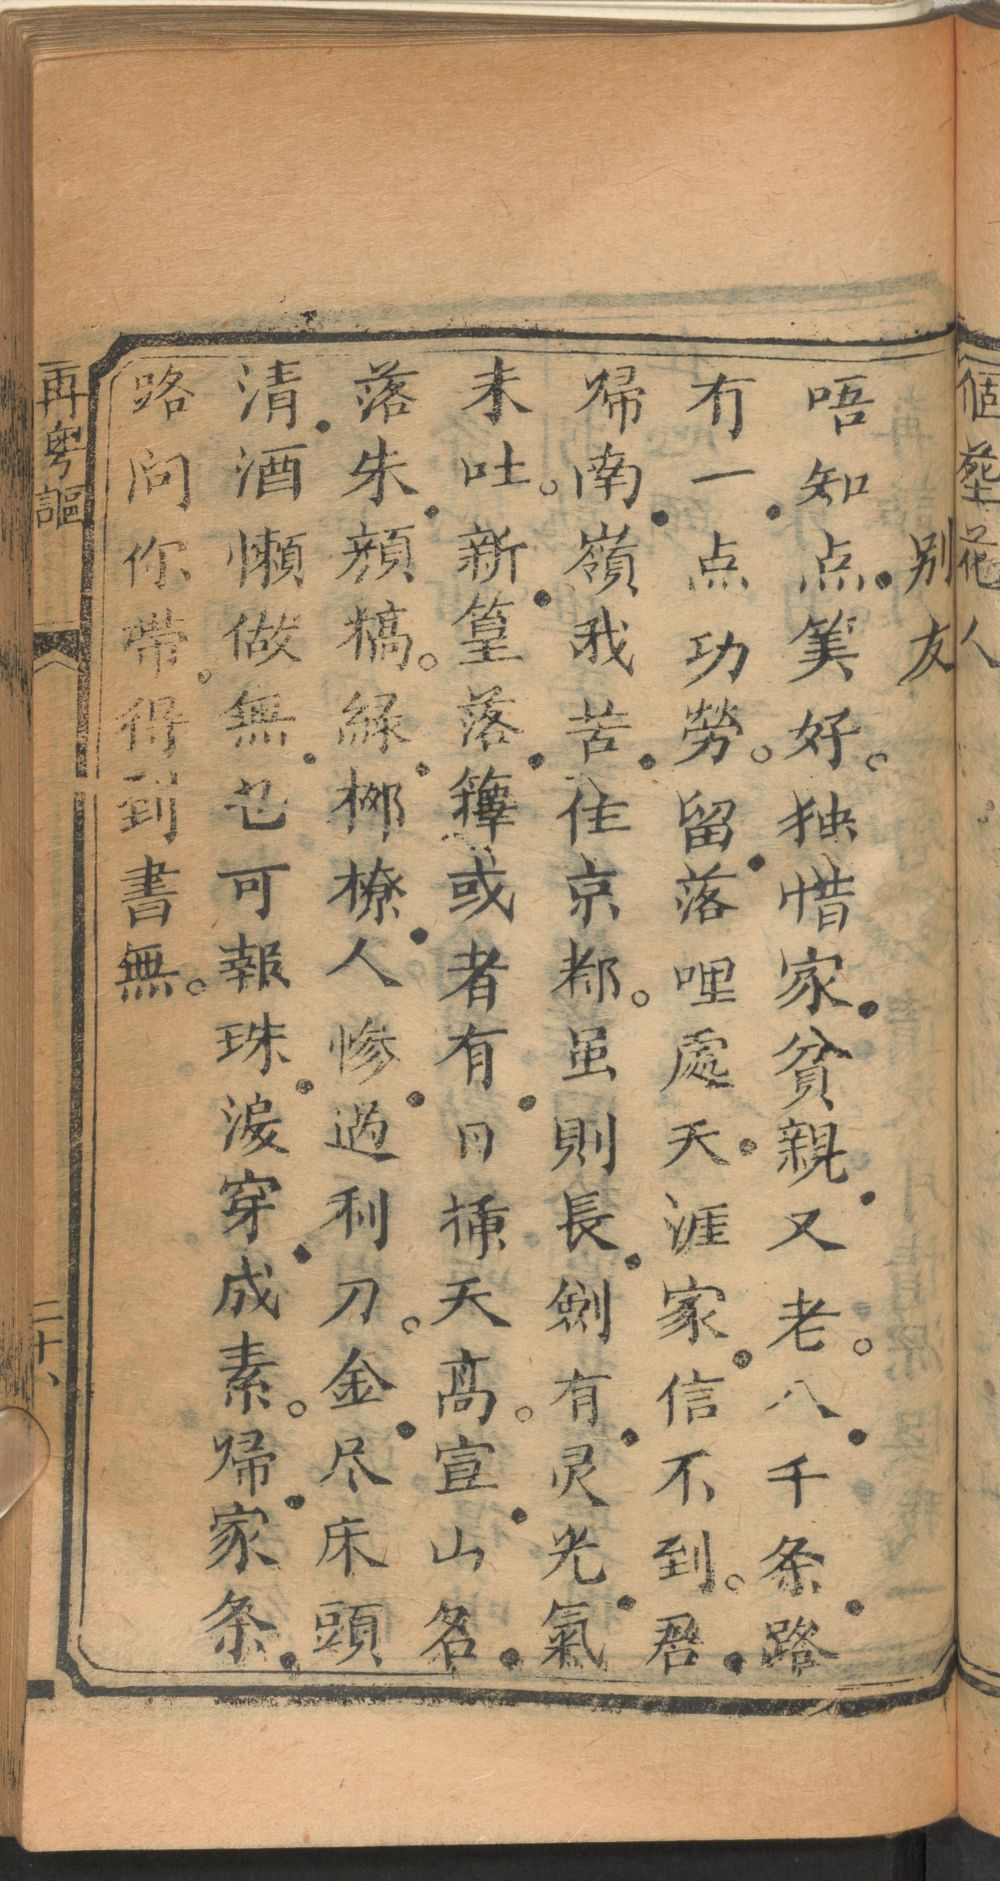 個塟花人
别友
唔知点筭好。独惜家貧親又老。八千条路
冇一点功勞。留落哩處天涯家信不到。君
帰南嶺我苦住京都。虽則長劍有灵光氣
未吐。新篁落籜或者有日插天高。宣山名
落朱顔槁。緑栁撩人惨過利刀。金尽床頭
清酒懒做無乜可報珠淚穿成素。帰家条
路问你帶。得到書無。
再粤謳
二十八